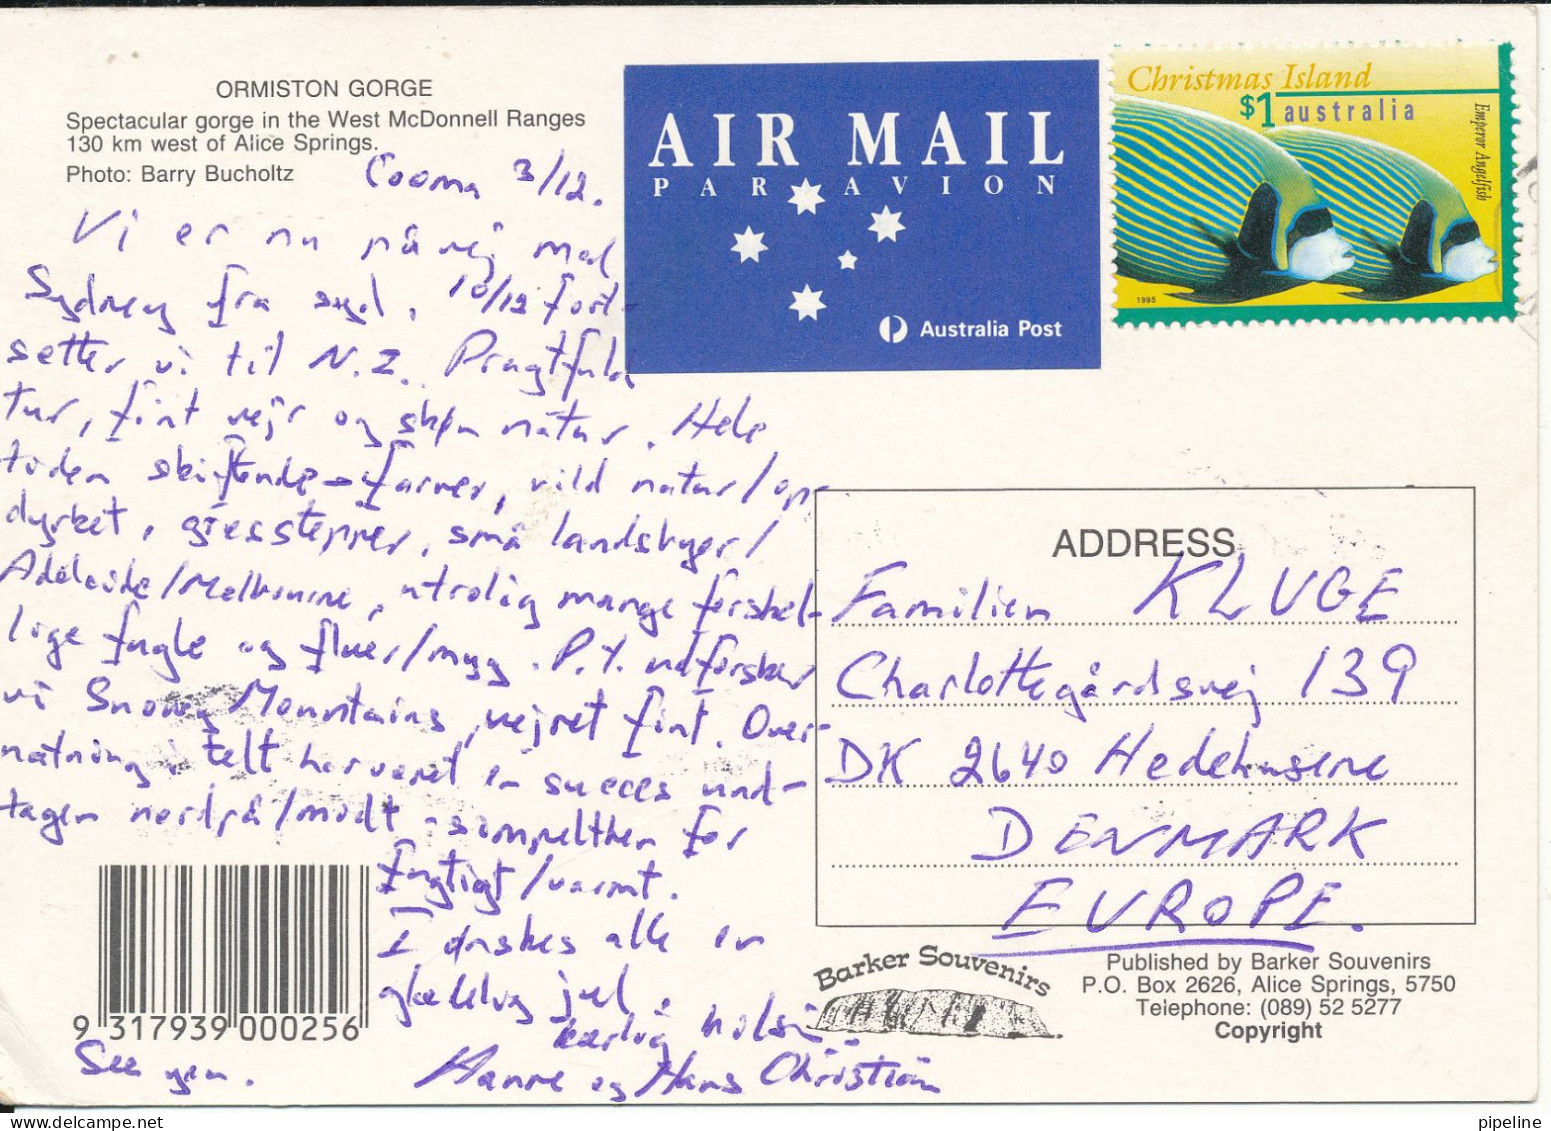 ORMISTON GORGE
Spectacular gorge in the West McDonnell Ranges
130 km west of Alice Springs.
Photo: Barry Bucholtz
Cooma 3/12.
Vi er nu på vej mod
Sydney fra syd. 10/12 fort-
setter vi til N.Z. Pragtfuld
tur, fint vejr og skøn natur. Hele
tiden skiftende farver, vild natur/op-
dyrket, græsstepper, små landsbyer/
Adelaide/Melbourne, utrolig mange forskel-
lige fugle og fluer/myg. P.t. udforsker
vi Snowy Mountains, vejret fint. Over-
natning i telt har været en succes und-
tagen nordpå/midt - simpelthen for
fugtigt/varmt.
I ønskes alle en
glædelig jul.
Kærlig hilsen
Hanne og Hans Christian
See you.
AIR MAIL
PAR AVION
Australia Post
Christmas Island
$1 australia
Emperor Angelfish
1995
ADDRESS
Familien KLUGE
Charlottegårdsvej 139
DK 2640 Hedehusene
DENMARK
EUROPE.
9 317939 000256
Barker Souvenirs
Published by Barker Souvenirs
P.O. Box 2626, Alice Springs, 5750
Telephone: (089) 52 5277
Copyright
pipeline